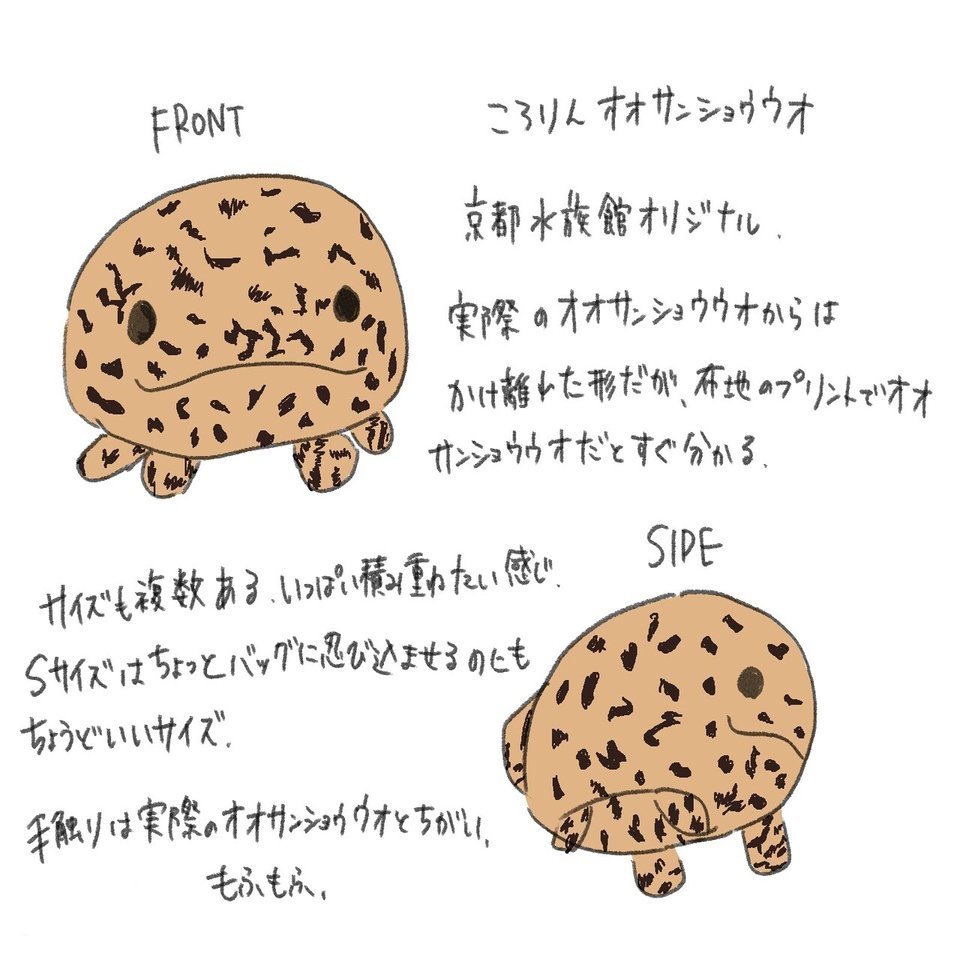 FRONT
ころりんオオサンショウウオ
京都水族館オリジナル.
実際のオオサンショウウオからは
かけ離れた形だが、布地のプリントでオオ
サンショウウオだとすぐ分かる.
SIDE
サイズも複数ある.いっぱい積み重ねたい感じ.
Sサイズはちょっとバッグに忍び込ませるのにも
ちょうどいいサイズ.
手触りは実際のオオサンショウウオとちがい、
もふもふ.